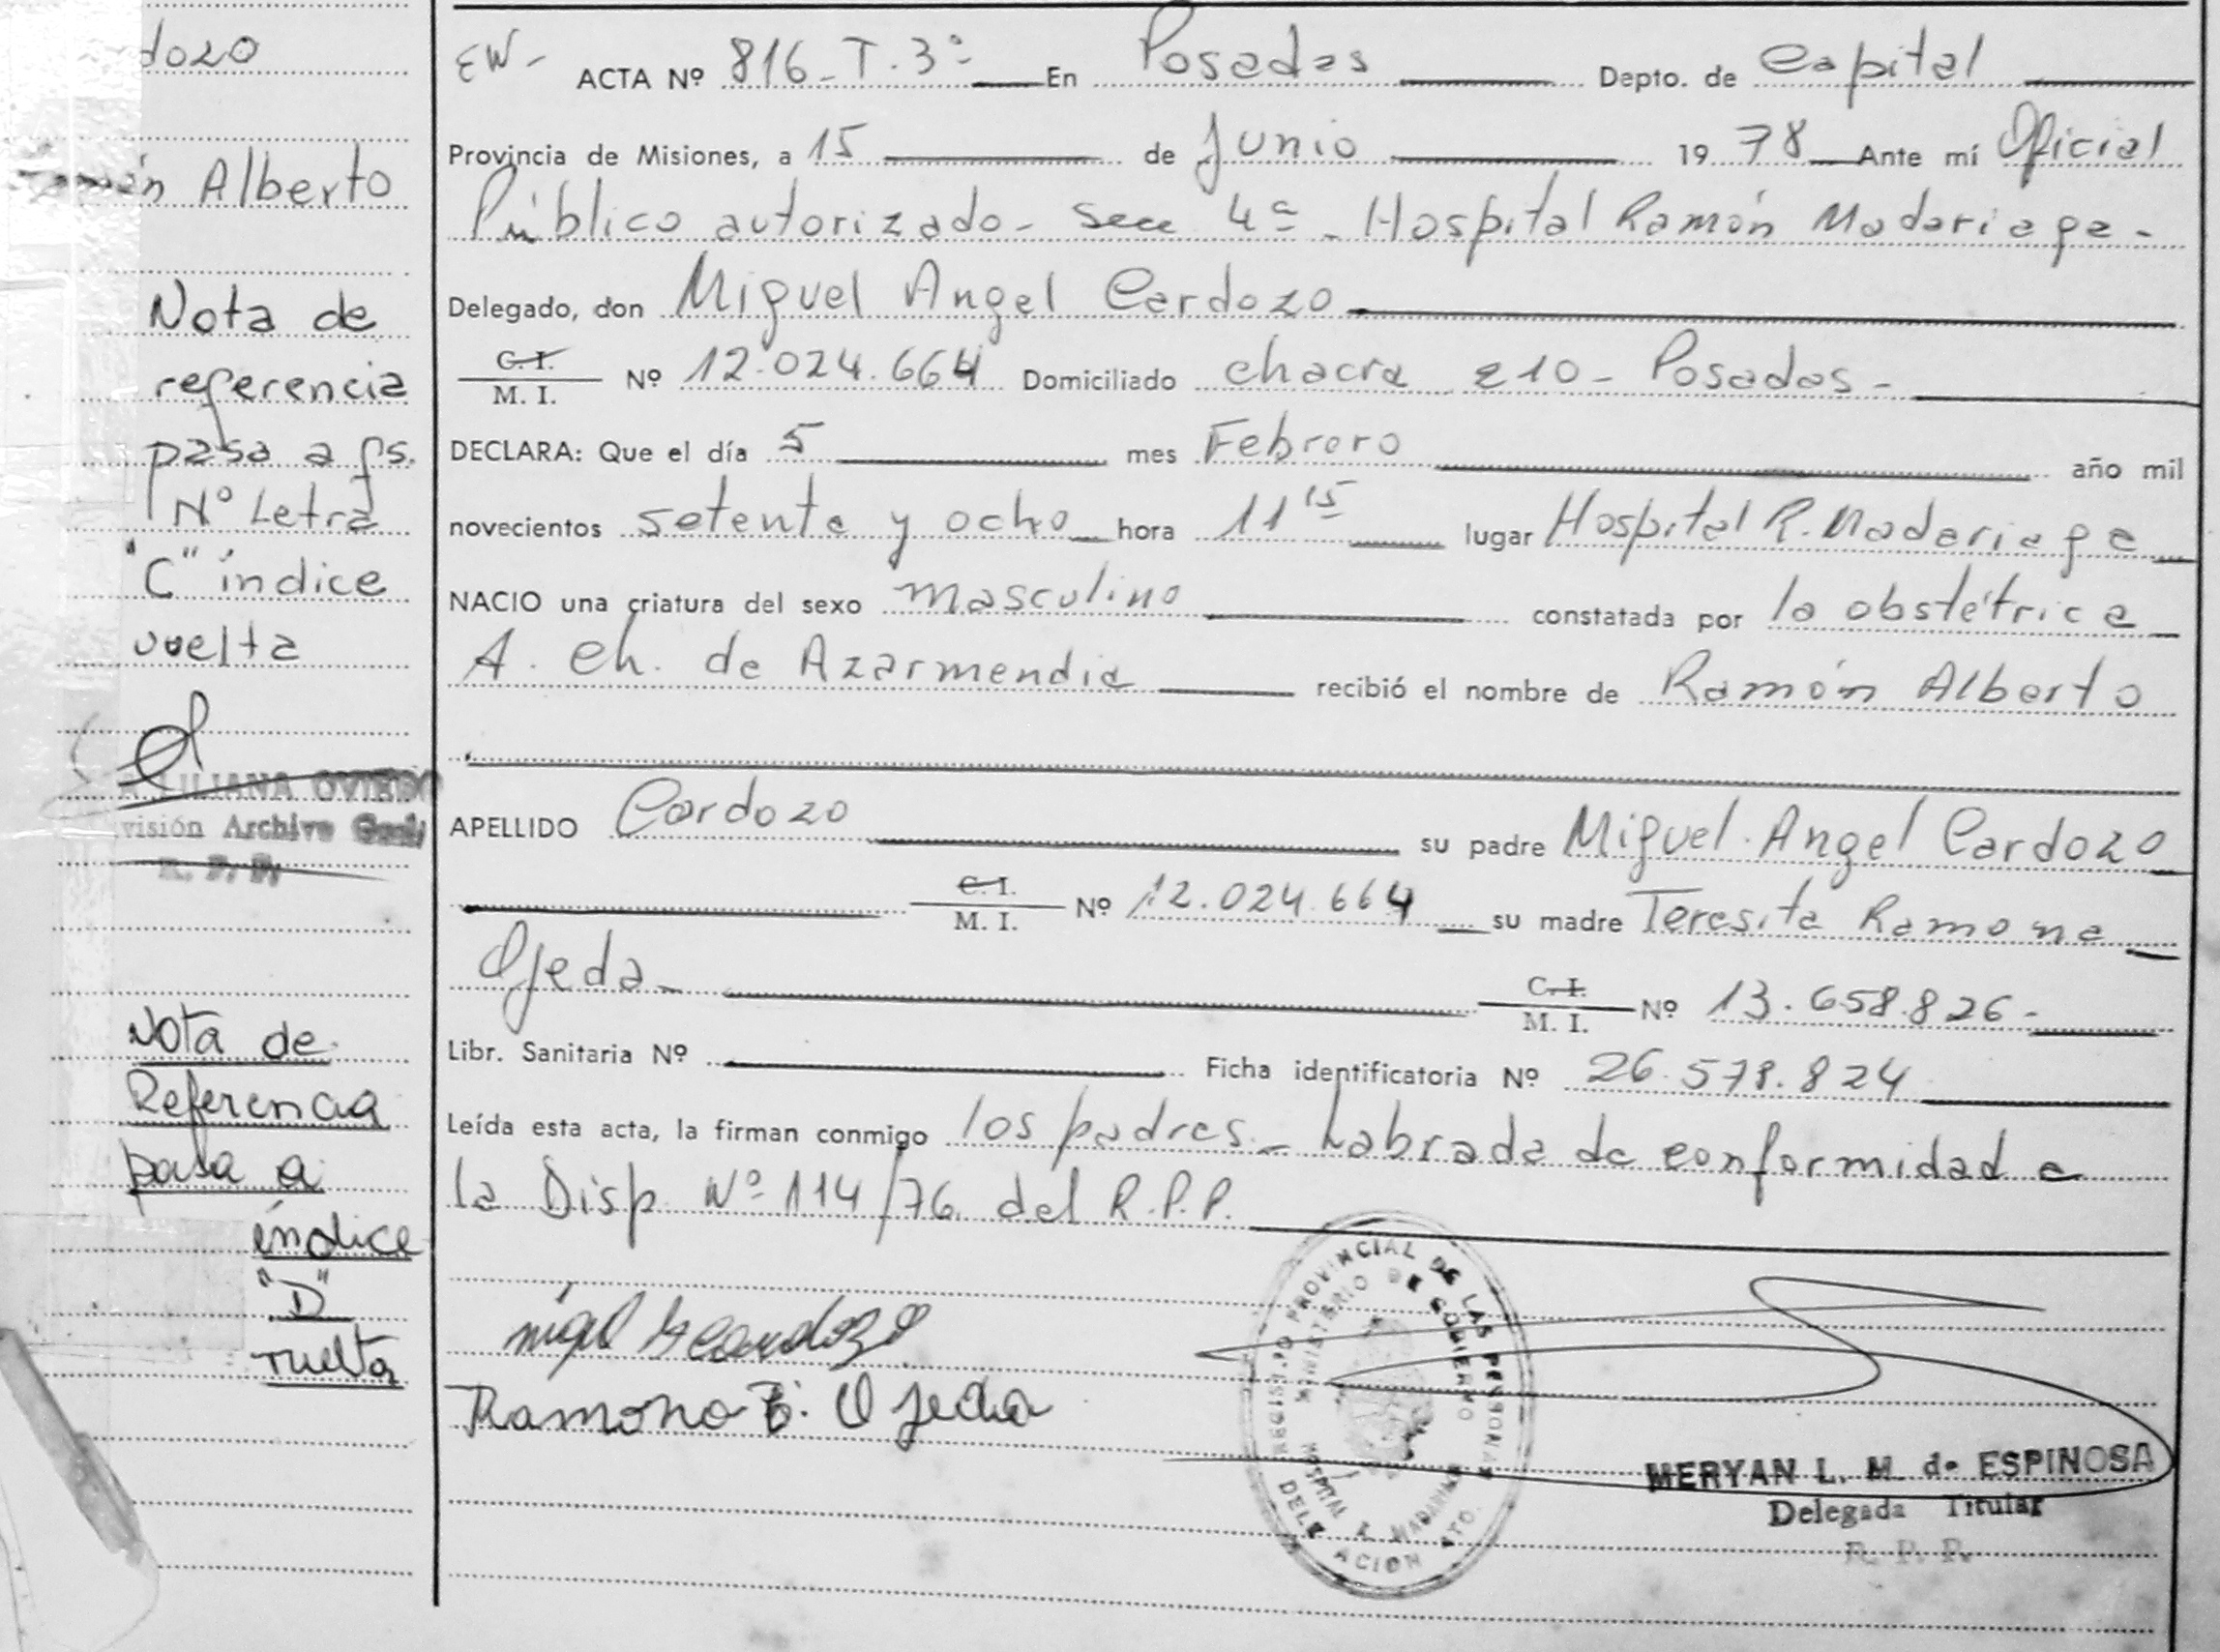 dozo
Alberto
Nota de
referencia
pasa a fs.
Nº Letra
"C" índice
vuelta
LILIANA OVIEDO
visión Archivo Gral
R. P. P.
Nota de
Referencia
pasa a
índice
"D"
vuelta
EW- ACTA Nº 816-T.3º En Posadas Depto. de Capital
Provincia de Misiones, a 15 de Junio 1978 Ante mí Oficial
Público autorizado- Secc 4ª - Hospital Ramón Madariaga-
Delegado, don Miguel Angel Cardozo
C. I.
M. I. Nº 12.024.664 Domiciliado chacra 210- Posadas-
DECLARA: Que el día 5 mes Febrero año mil
novecientos setenta y ocho hora 11 15 lugar Hospital R. Madariaga
NACIO una criatura del sexo masculino constatada por la obstétrica
A. Ch. de Azarmendia recibió el nombre de Ramón Alberto
APELLIDO Cardozo su padre Miguel Angel Cardozo
C. I.
M. I. Nº 12.024.664 su madre Teresita Ramona
Ojeda- C. I.
M. I. Nº 13.658.826-
Libr. Sanitaria Nº Ficha identificatoria Nº 26.578.824
Leída esta acta, la firman conmigo los padres- Labrada de conformidad a
la Disp. Nº 114/76 del R.P.P.
Ramona T. Ojeda
REGISTRO PROVINCIAL DE LAS PERSONAS
MINISTERIO DE GOBIERNO
HOSPITAL R. MADARIAGA
DELEGACION
MERYAN L. M. de ESPINOSA
Delegada Titular
R. P. P.